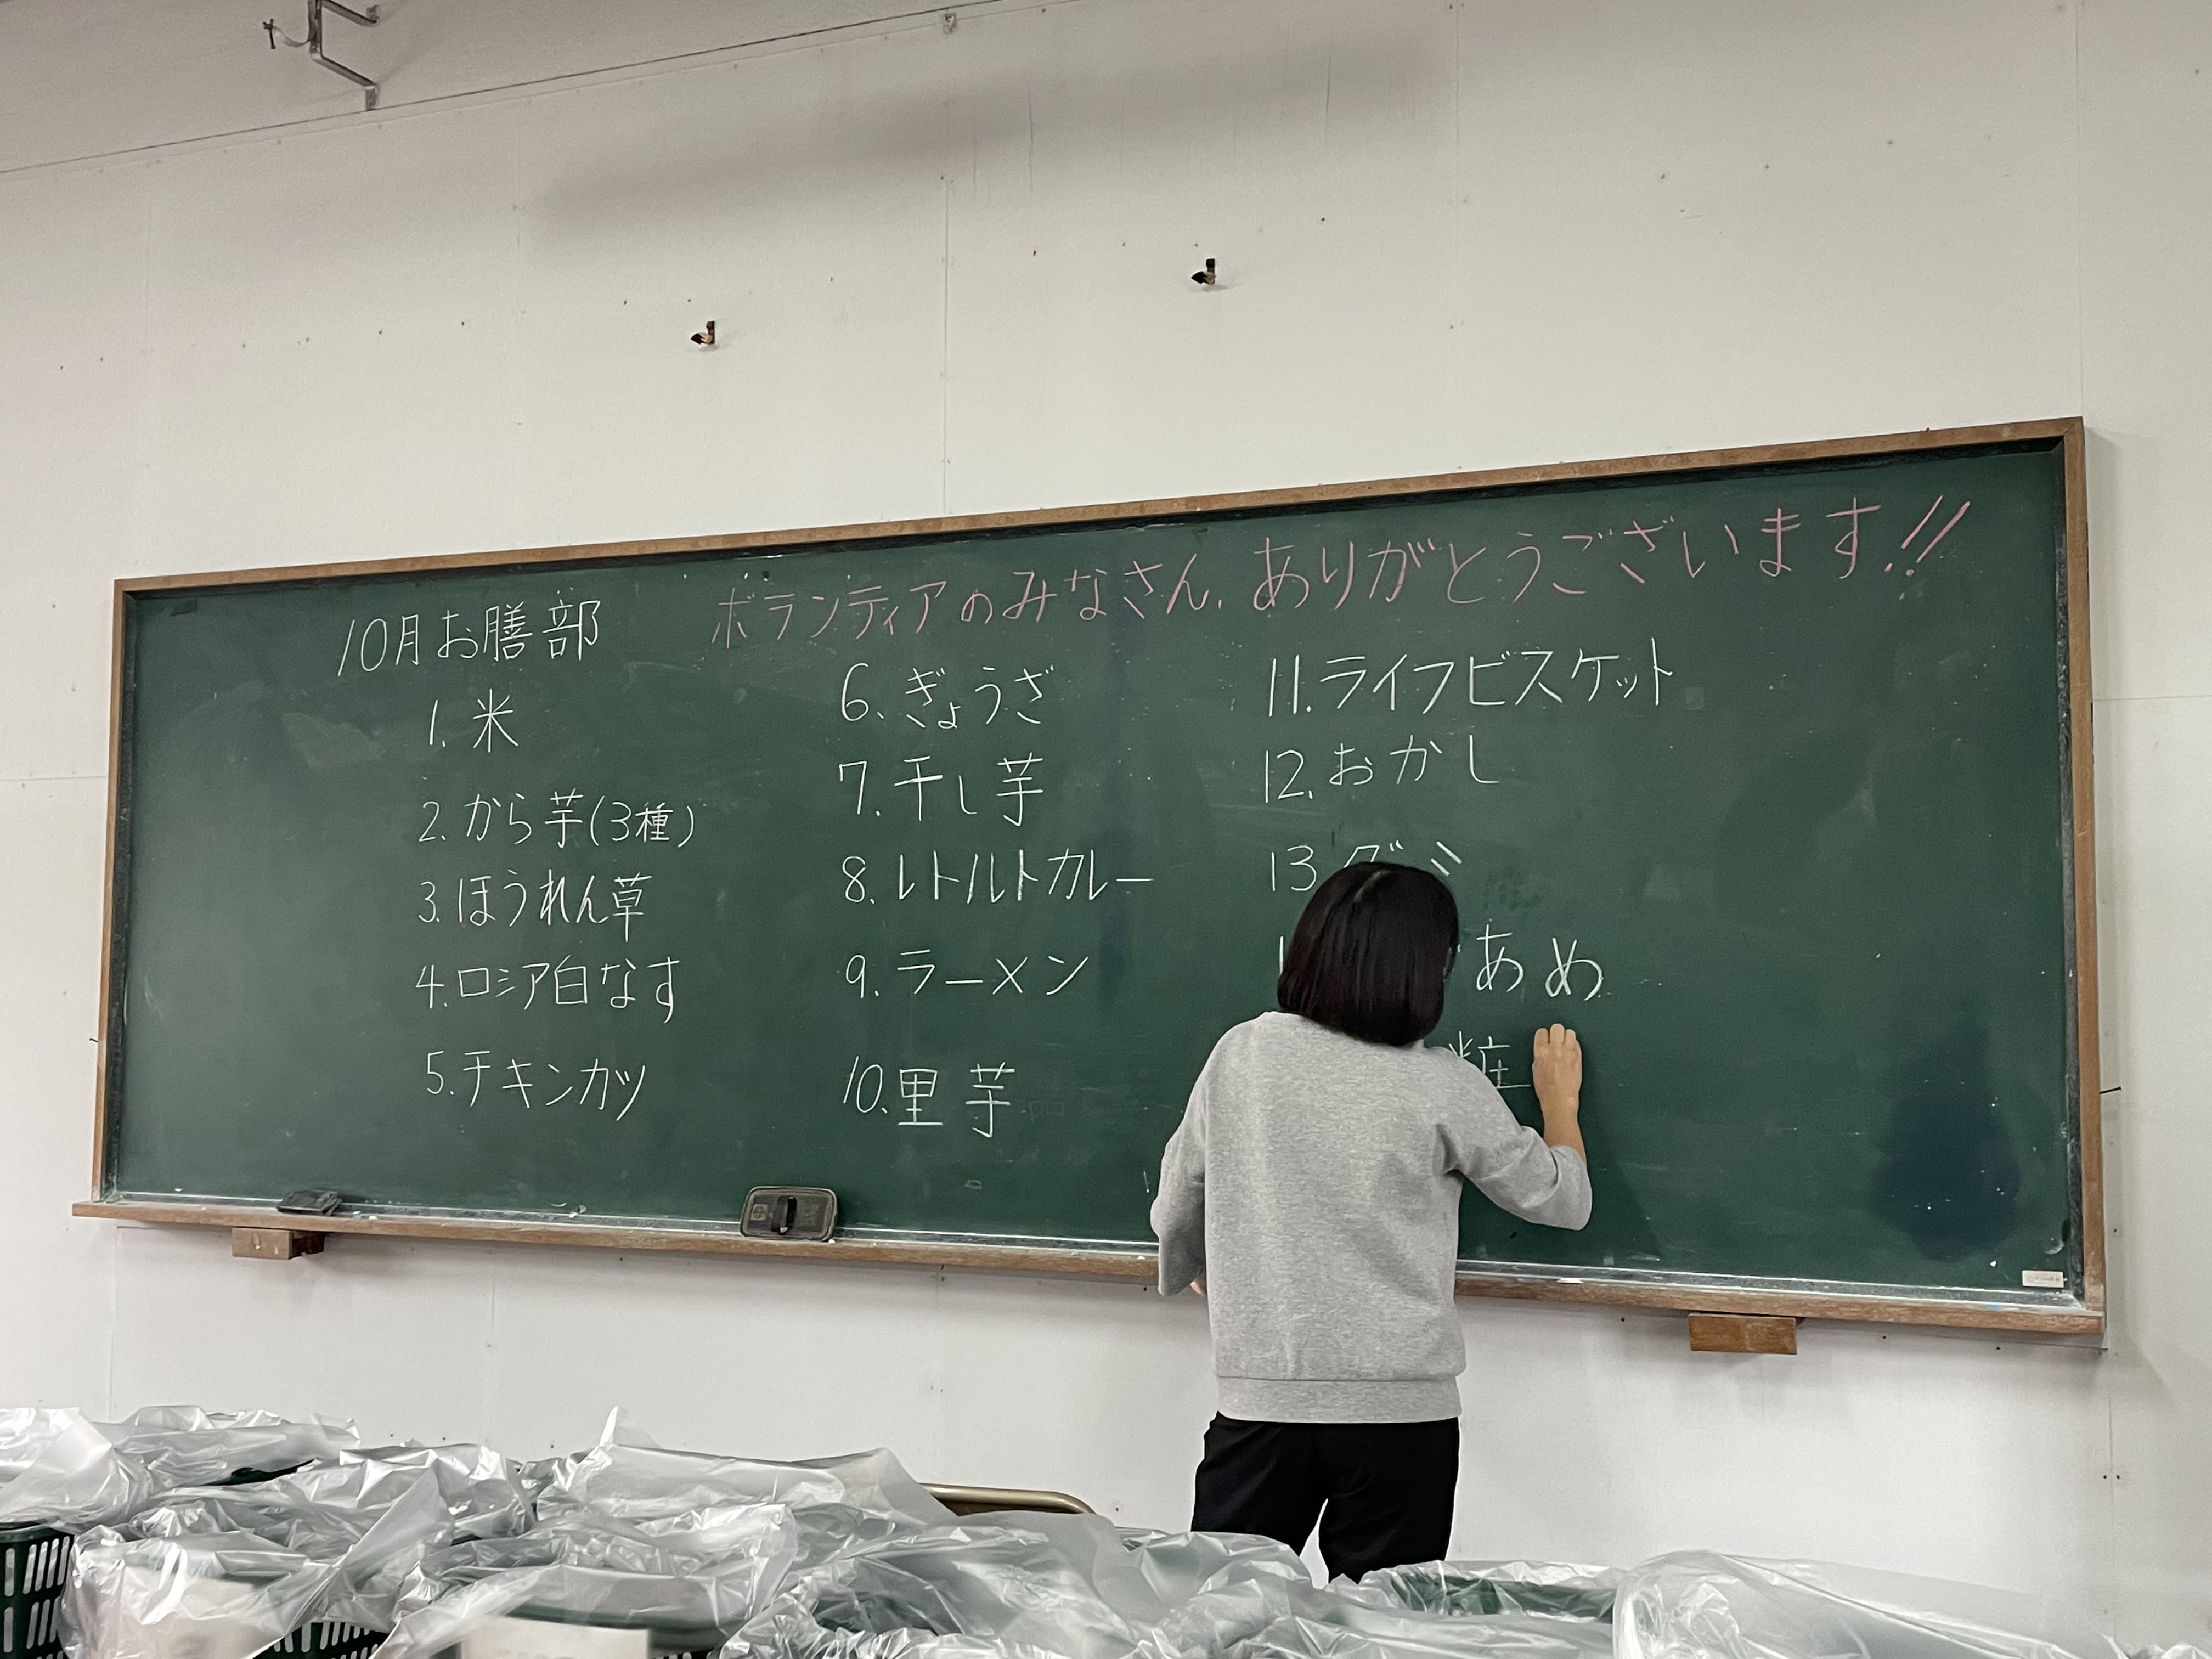 ボランティアのみなさん、ありがとうございます!!
10月お膳部
1. 米
2. から芋(3種)
3. ほうれん草
4. ロシア白なす
5. チキンカツ
6. ぎょうざ
7. 干し芋
8. レトルトカレー
9. ラーメン
10. 里芋
11. ライフビスケット
12. おかし
13
あめ
粧